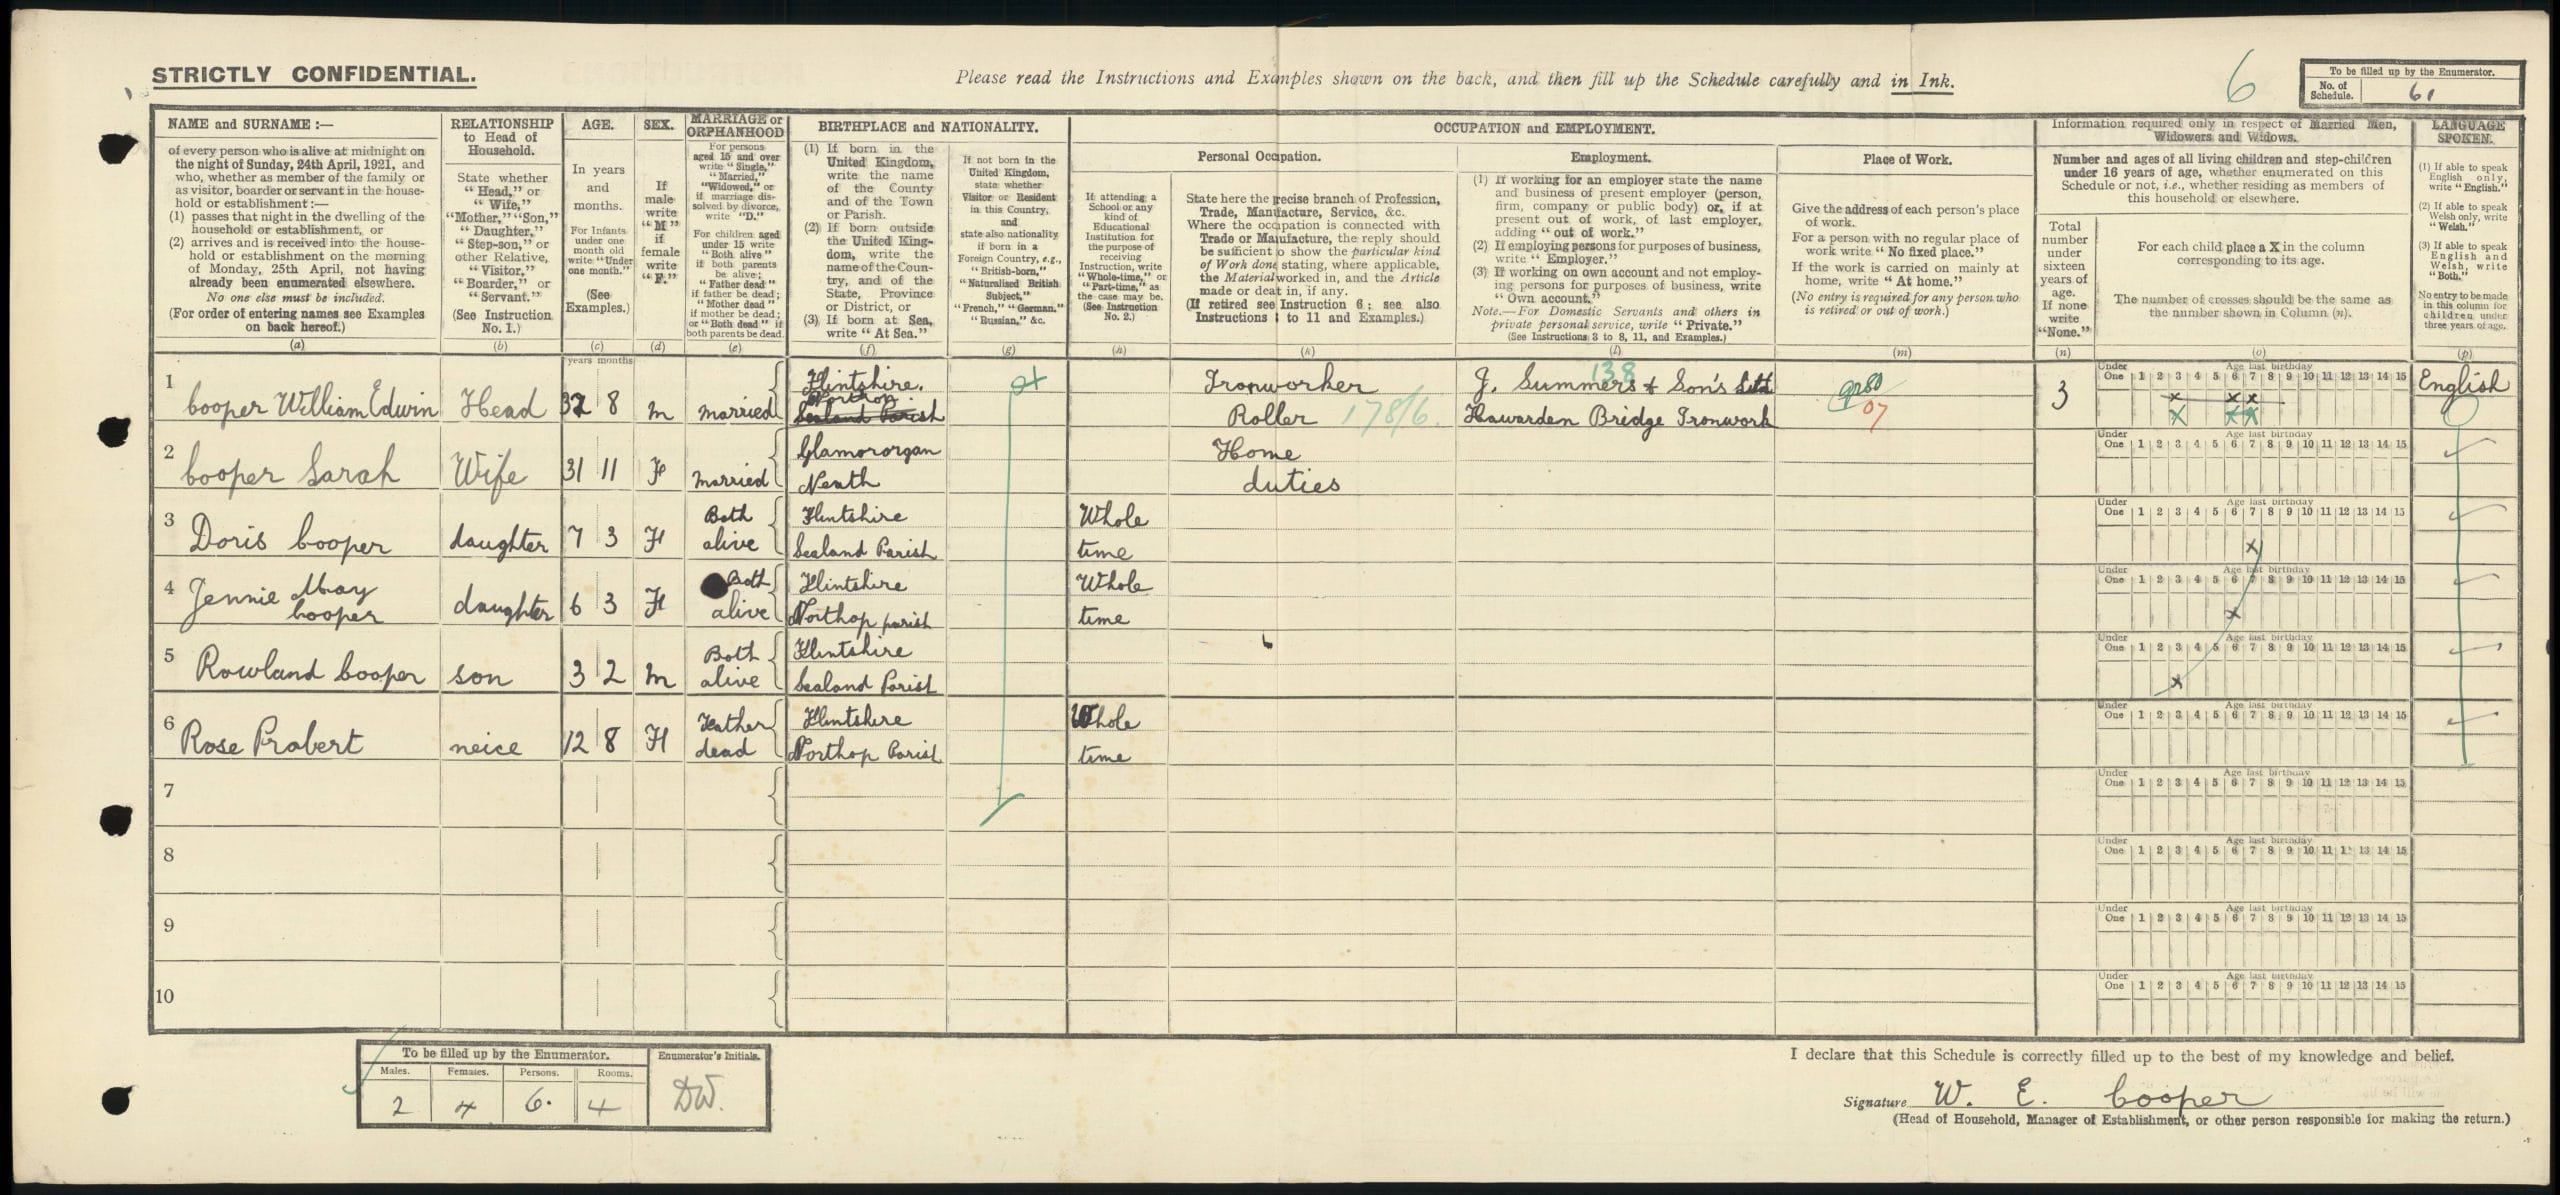 STRICTLY CONFIDENTIAL.
Please read the Instructions and Examples shown on the back, and then fill up the Schedule carefully and in Ink.
6
To be filled up by the Enumerator.
No. of Schedule. 61
NAME and SURNAME :—
of every person who is alive at midnight on
the night of Sunday, 24th April, 1921, and
who, whether as member of the family or
as visitor, boarder or servant in the house-
hold or establishment :—
(1) passes that night in the dwelling of the
household or establishment, or
(2) arrives and is received into the house-
hold or establishment on the morning
of Monday, 25th April, not having
already been enumerated elsewhere.
No one else must be included.
(For order of entering names see Examples
on back hereof.)
(a)
RELATIONSHIP
to Head of
Household.
State whether
"Head," or
"Wife,"
"Mother," "Son,"
"Daughter,"
"Step-son," or
other Relative,
"Visitor,"
"Boarder," or
"Servant."
(See Instruction
No. 1.)
(b)
AGE.
In years
and
months.
For Infants
under one
month old
write "Under
one month."
(See
Examples.)
(c)
SEX.
If
male
write
"M"
if
female
write
"F."
(d)
MARRIAGE or
ORPHANHOOD
For persons
aged 15 and over
write "Single,"
"Married,"
"Widowed," or
if marriage dis-
solved by divorce,
write "D."
For children aged
under 15 write
"Both alive"
if both parents
be alive;
"Father dead"
if father be dead;
"Mother dead"
if mother be dead;
or "Both dead" if
both parents be dead.
(e)
BIRTHPLACE and NATIONALITY.
(1) If born in the
United Kingdom,
write the name
of the County
and of the Town
or Parish.
(2) If born outside
the United King-
dom, write the
name of the Coun-
try, and of the
State, Province
or District, or
(3) If born at Sea,
write "At Sea."
(f)
If not born in the
United Kingdom,
state whether
Visitor or Resident
in this Country,
and
state also nationality
if born in a
Foreign Country, e.g.,
"British-born,"
"Naturalised British
Subject,"
"French," "German,"
"Russian," &c.
(g)
OCCUPATION and EMPLOYMENT.
If attending a
School or any
kind of
Educational
Institution for
the purpose of
receiving
Instruction, write
"Whole-time," or
"Part-time," as
the case may be.
(See Instruction
No. 2.)
(h)
Personal Occupation.
State here the precise branch of Profession,
Trade, Manufacture, Service, &c.
Where the occupation is connected with
Trade or Manufacture, the reply should
be sufficient to show the particular kind
of Work done stating, where applicable,
the Material worked in, and the Article
made or dealt in, if any.
(If retired see Instruction 6; see also
Instructions 1 to 11 and Examples.)
(k)
Employment.
(1) If working for an employer state the name
and business of present employer (person,
firm, company or public body) or, if at
present out of work, of last employer,
adding "out of work."
(2) If employing persons for purposes of business,
write "Employer."
(3) If working on own account and not employ-
ing persons for purposes of business, write
"Own account."
Note.—For Domestic Servants and others in
private personal service, write "Private."
(See Instructions 3 to 8, 11, and Examples.)
(l)
Place of Work.
Give the address of each person's place
of work.
For a person with no regular place of
work write "No fixed place."
If the work is carried on mainly at
home, write "At home."
(No entry is required for any person who
is retired or out of work.)
(m)
Information required only in respect of Married Men,
Widowers and Widows.
Number and ages of all living children and step-children
under 16 years of age, whether enumerated on this
Schedule or not, i.e., whether residing as members of
this household or elsewhere.
Total
number
under
sixteen
years of
age.
If none
write
"None."
(n)
For each child place a X in the column
corresponding to its age.
The number of crosses should be the same as
the number shown in Column (n).
(o)
LANGUAGE
SPOKEN.
(1) If able to speak
English only,
write "English."
(2) If able to speak
Welsh only, write
"Welsh."
(3) If able to speak
English and
Welsh, write
"Both."
No entry to be made
in this column for
children under
three years of age.
(p)
years months
1 Cooper William Edwin Head 32 8 M Married Flintshire. Northop. Sealand Parish Ironworker Roller 178/6. J. Summers & Son's Ltd Hawarden Bridge Ironwork 138 07 3 English
Under One 1 2 3 4 5 6 7 8 9 10 11 12 13 14 15 Age last birthday
x x x
2 Cooper Sarah Wife 31 11 F Married Glamororgan Neath Home duties
Under One 1 2 3 4 5 6 7 8 9 10 11 12 13 14 15 Age last birthday
3 Doris Cooper daughter 7 3 F Both alive Flintshire Sealand Parish Whole time
Under One 1 2 3 4 5 6 7 8 9 10 11 12 13 14 15 Age last birthday
x
4 Jennie May Cooper daughter 6 3 F Both alive Flintshire Northop parish Whole time
Under One 1 2 3 4 5 6 7 8 9 10 11 12 13 14 15 Age last birthday
x
5 Rowland Cooper son 3 2 M Both alive Flintshire Sealand Parish
Under One 1 2 3 4 5 6 7 8 9 10 11 12 13 14 15 Age last birthday
x
6 Rose Probert neice 12 8 F Father dead Flintshire Northop Parish Whole time
Under One 1 2 3 4 5 6 7 8 9 10 11 12 13 14 15 Age last birthday
7
Under One 1 2 3 4 5 6 7 8 9 10 11 12 13 14 15 Age last birthday
8
Under One 1 2 3 4 5 6 7 8 9 10 11 12 13 14 15 Age last birthday
9
Under One 1 2 3 4 5 6 7 8 9 10 11 12 13 14 15 Age last birthday
10
Under One 1 2 3 4 5 6 7 8 9 10 11 12 13 14 15 Age last birthday
To be filled up by the Enumerator.
Males. Females. Persons. Rooms.
2 4 6. 4
Enumerator's Initials.
DW.
I declare that this Schedule is correctly filled up to the best of my knowledge and belief.
Signature W. E. Cooper
(Head of Household, Manager of Establishment, or other person responsible for making the return.)